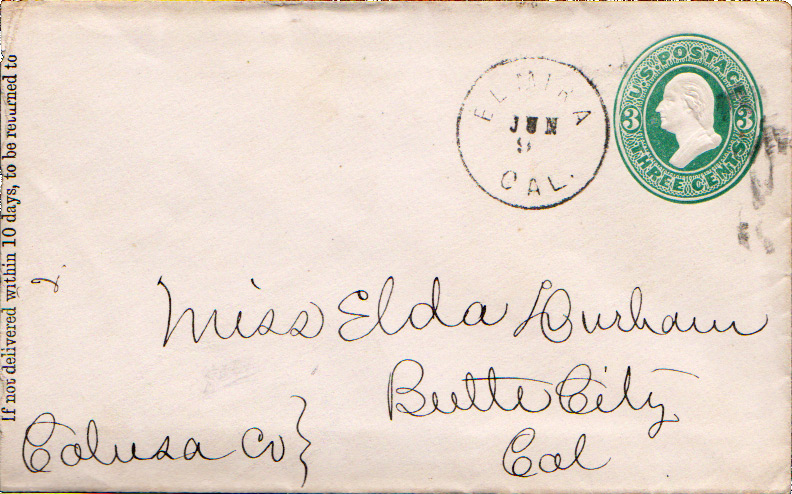 If not delivered within 10 days, to be returned to
ELMIRA
JUN
9
CAL.
U.S. POSTAGE
3 3
THREE CENTS
Miss Elda Durham
Butte City
Cal
Colusa Co }